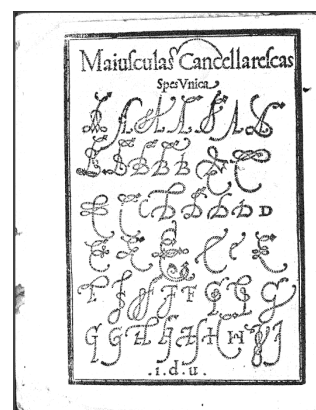 Maiuſculas Cancellareſcas
Spes Vnica
A A A A A A A
B B B B C C
C C D D D D D D
E E E E E E
F F F F G G G
G G H H H H H I I
.i.d.u.